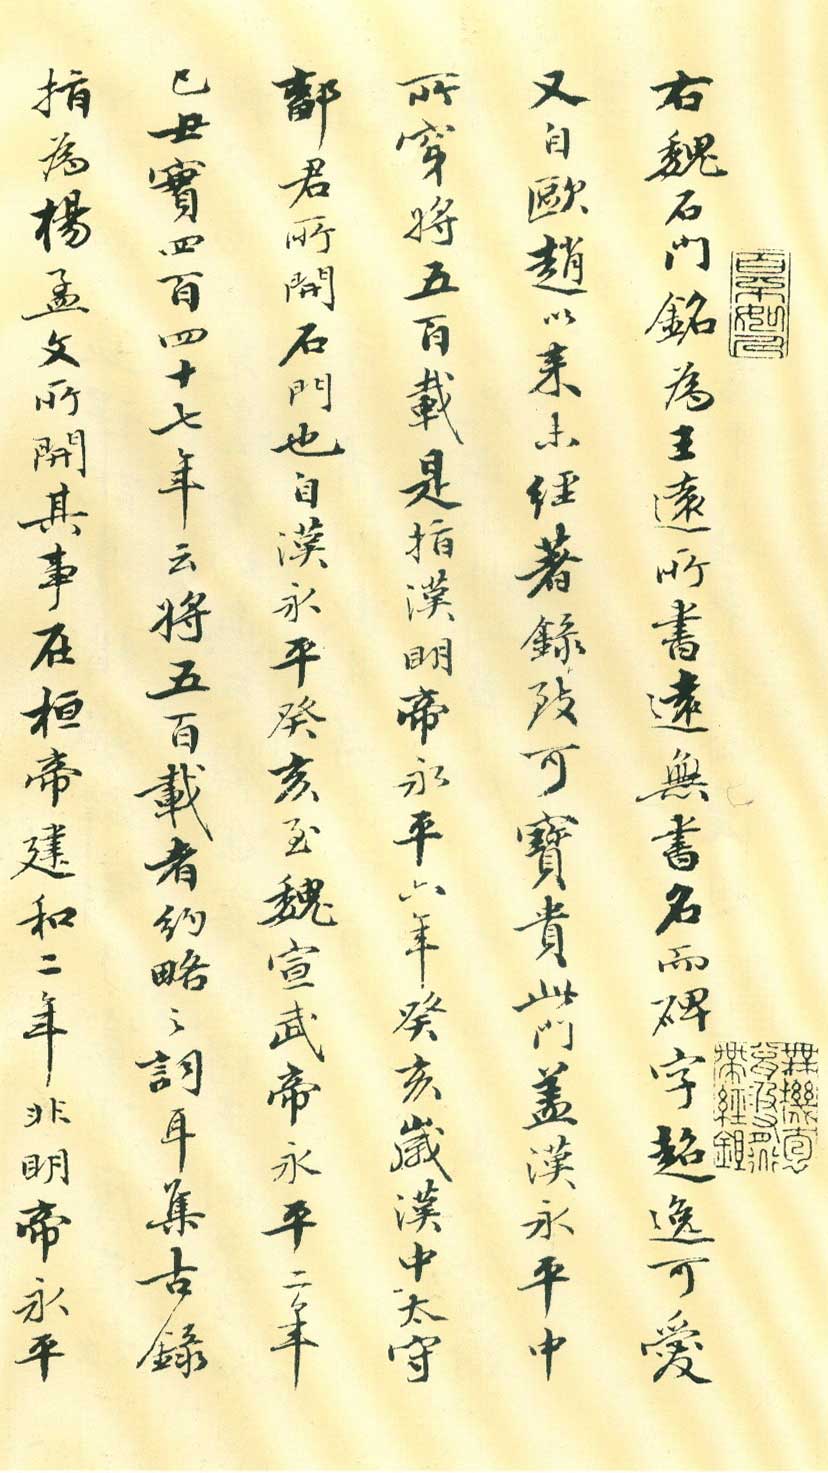 右魏石門銘為王遠所書遠無書名而碑字超逸可愛
又自歐趙以来未經著錄致可寶貴此門蓋漢永平中
所穿將五百載是指漢明帝永平六年癸亥歲漢中太守
鄐君所開石門也自漢永平癸亥至魏宣武帝永平二年
已丑實四百四十七年云將五百載者約略之詞耳集古錄
指為楊孟文所開其事在桓帝建和二年非明帝永平